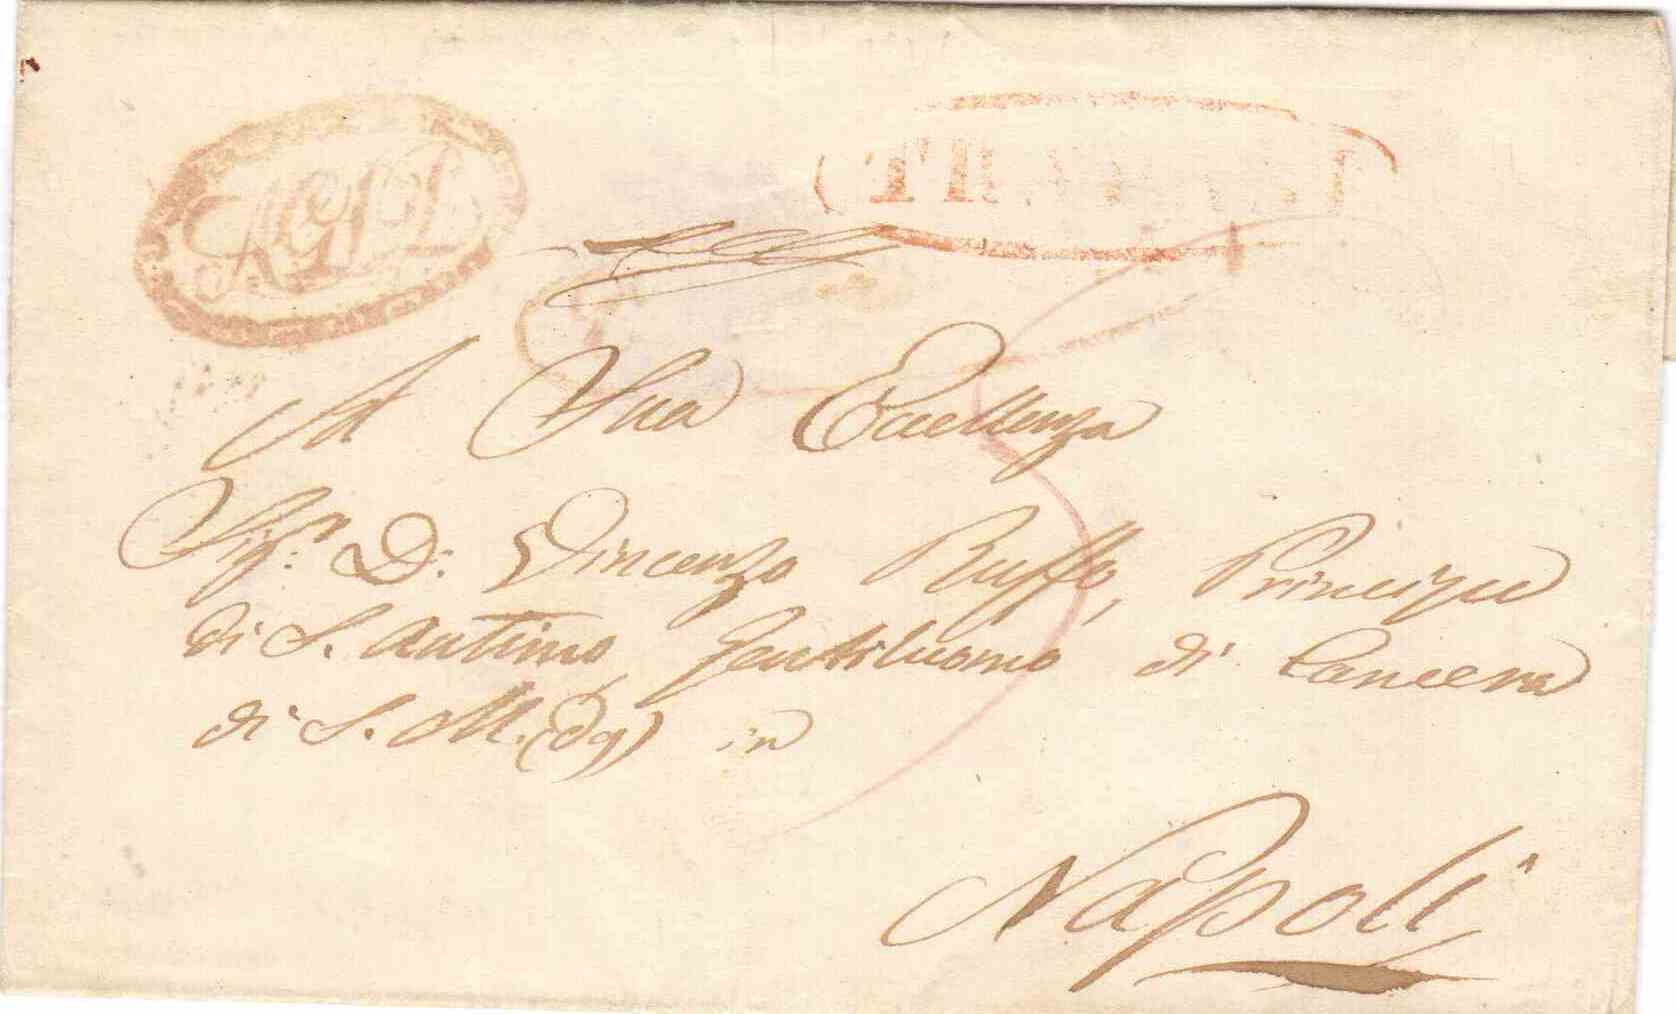 A Sua Eccellenza
Sig.r D: Vincenzo Ruffo, Principe
di S. Antimo, Gentiluomo di Camera
di S. M. (dg) in
Napoli